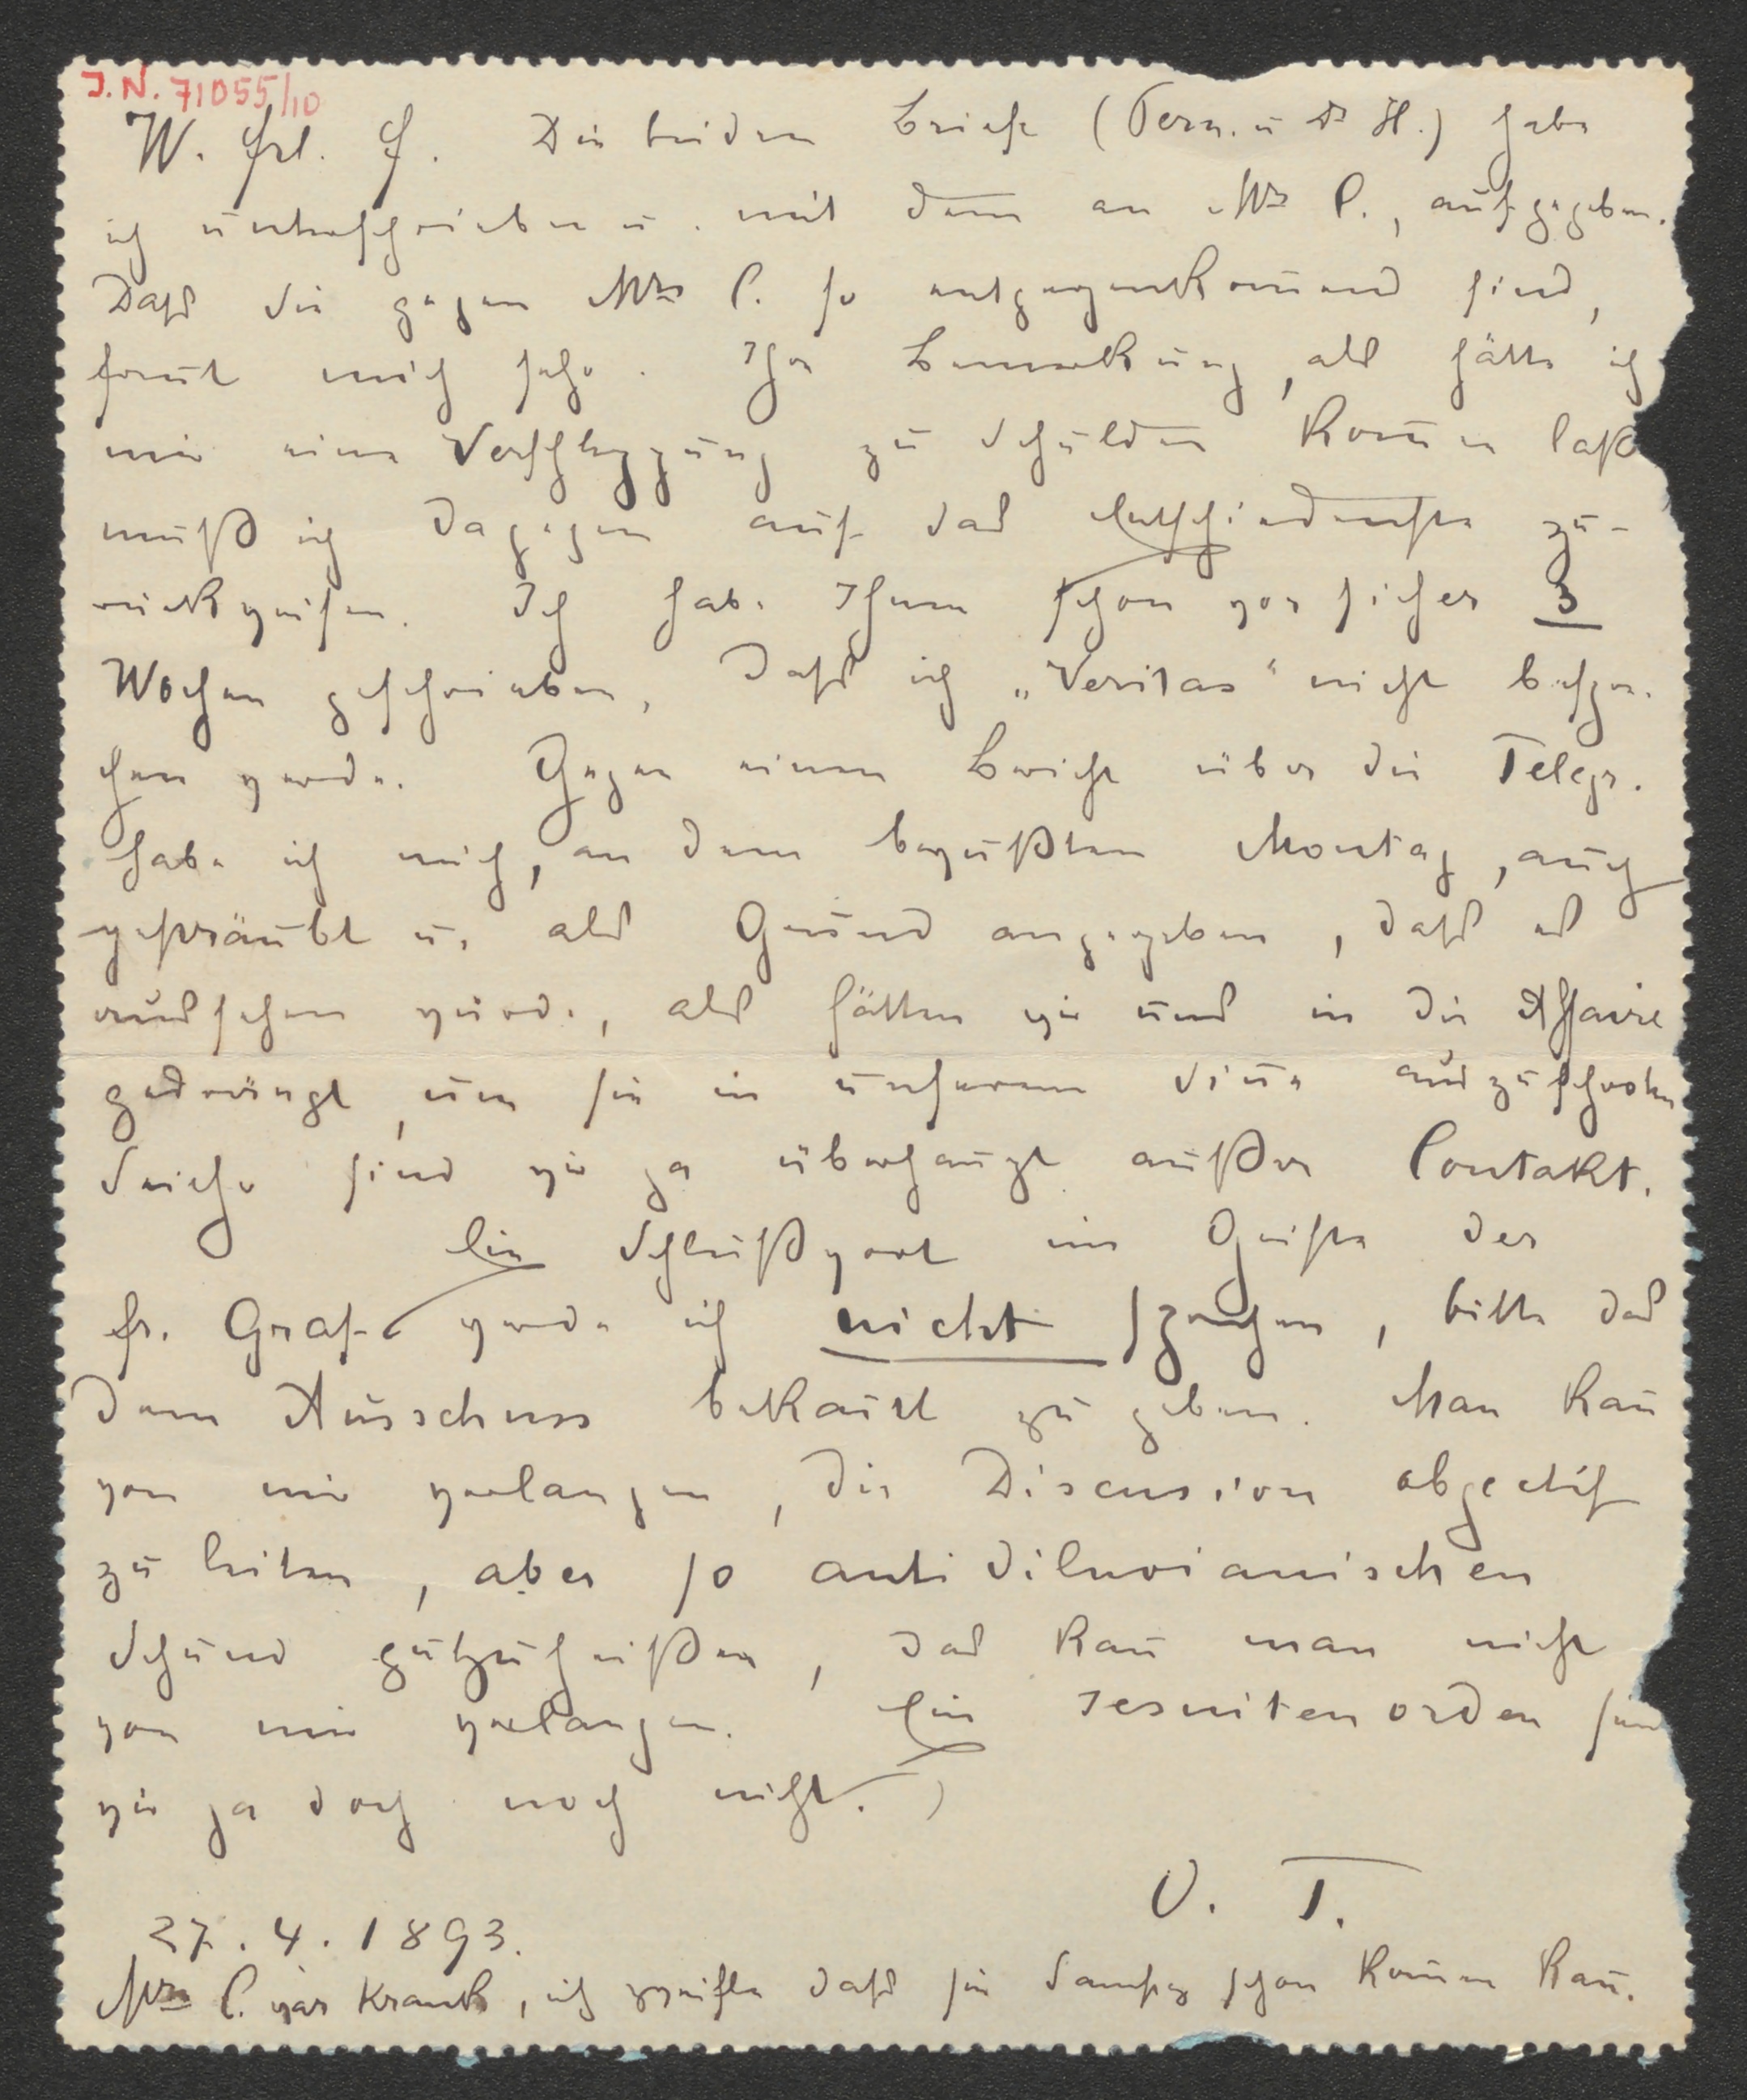 J. N. 71055/10
W. Frl. F. Die beiden Briefe (Pern. u Dr H.) habe
ich unterschrieben u. mit dem an Mrs P., aufgegeben.
Daß Sie gegen Mrs P. so entgegenkom̄end sind,
freut mich sehr. Ihre Bemerkung, als hätte ich
mir eine Verschleppung zu Schulden kom̄en laß
muß ich dagegen auf das Entschiedenste zu-
rückweisen. Ich habe Ihnen schon vor sicher 3
Wochen geschrieben, daß ich „Veritas" nicht bespre-
chen werde. Gegen einen Bericht über die Telegr.
habe ich mich, an dem bewußten Montag, auch
gesträubt u. als Grund angegeben, daß es
aussehen würde, als hätten wir uns in die Affaire
gedrängt, um sie in unserem Sin̄e auszuschroten
Seither sind wir ja überhaupt außer Contakt.
Ein Schlußwort im Geiste der
Fr. Graf werde ich nicht sprechen, bitte das
dem Ausschuss bekan̄t zu geben. Man kan̄
von mir verlangen, die Discussion objectif
zu leiten, aber so antidiluvianischen
Schund gutzuheißen, das kan̄ man nicht
von mir verlangen. Ein Jesuitenorden sind
wir ja doch noch nicht.
27. 4. 1893.
Mrs P. war krank, ich zweifle daß sie Samstag schon kom̄en kan̄.